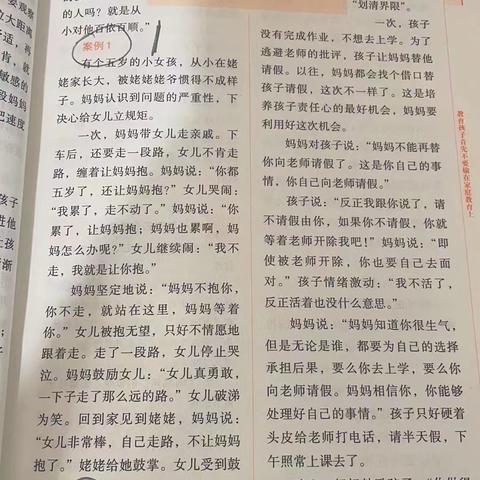 要观察
位大距离
舒适，再
肯，就
敏感的
段妈妈
把速度
孩子
进他
让孩
渐渐
的人吗？就是从
小对他百依百顺。”
案例1
有个五岁的小女孩，从小在姥
姥家长大，被姥姥姥爷惯得不成样
子。妈妈认识到问题的严重性，下
决心给女儿立规矩。
一次，妈妈带女儿走亲戚。下
车后，还要走一段路，女儿不肯走
路，缠着让妈妈抱。妈妈说：“你都
五岁了，还让妈妈抱？”女儿哭闹：
“我累了，走不动了。”妈妈说：“你
累了，让妈妈抱；妈妈也累啊，妈
妈怎么办呢？”女儿继续闹：“我不
走，我就是让你抱。”
妈妈坚定地说：“妈妈不抱你，
你不走，就站在这里，妈妈等着
你。”女儿被抱无望，只好不情愿地
跟着走。走了一段路，女儿停止哭
泣。妈妈鼓励女儿：“女儿真勇敢，
一下子走了那么远的路。”女儿破涕
为笑。回到家见到姥姥，妈妈说：
“女儿非常棒，自己走路，不让妈妈
抱了。”姥姥给她鼓掌。女儿受到鼓
“划清界限”。
一次，孩子
没有完成作业，不想去上学。为了
逃避老师的批评，孩子让妈妈替他
请假。以往，妈妈都会找个借口替
孩子请假，这次不一样了。这是培
养孩子责任心的最好机会，妈妈要
利用好这次机会。
妈妈对孩子说：“妈妈不能再替
你向老师请假了。这是你自己的事
情，你自己向老师请假。”
孩子说：“反正我跟你说了，请
不请假由你，如果你不请假，你就
等着老师开除我吧！”妈妈说：“即
使被老师开除，你也要自己去面
对。”孩子情绪激动：“我不活了，
反正活着也没什么意思。”
妈妈说：“妈妈知道你很生气，
但是无论是谁，都要为自己的选择
承担后果，要么你去上学，要么你
向老师请假。妈妈相信你，你能够
处理好自己的事情。”孩子只好硬着
头皮给老师打电话，请半天假，下
午照常上课去了。
教育孩子首先不要输在家庭教育上